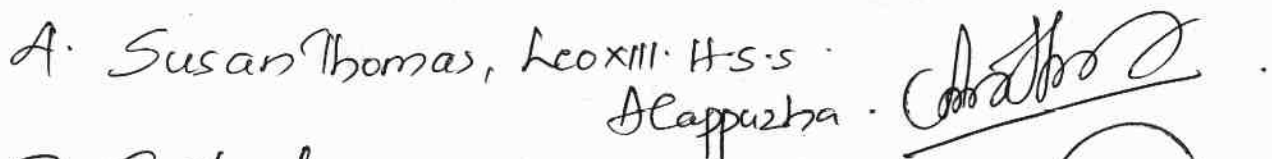 A. Susan Thomas, Leo XIII. H.S.S.
Alappuzha.